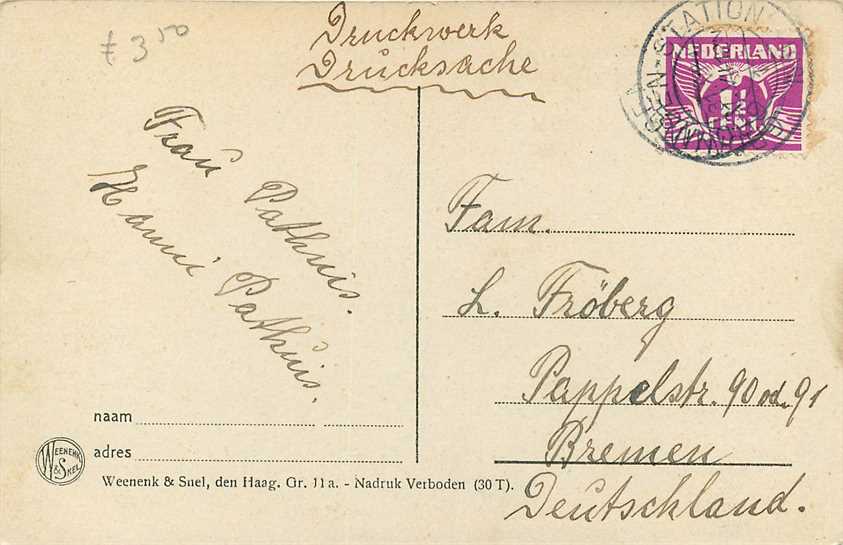 ƒ 3 50
Druckwerk
Drucksache
STATION
NEDERLAND
1½
CENT
Frau Pathuis.
Hanni Pathuis.
Fam.
L. Fröberg
Pappelstr. 90 od. 91
Bremen
Deutschland.
naam
adres
WEENENK
& SNEL
Weenenk & Snel, den Haag. Gr. 11a. - Nadruk Verboden (30 T).